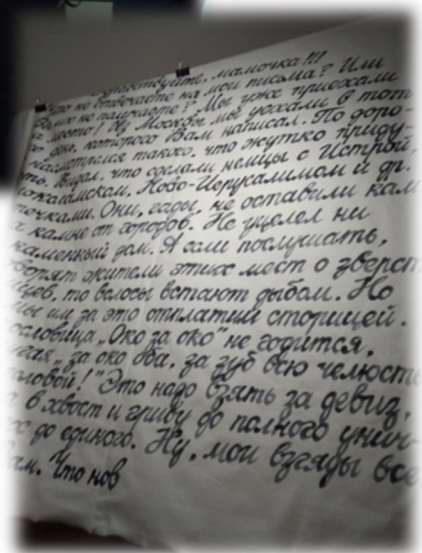 Здравствуйте, мамочка!!!
Что не отвечаете на мои письма? Или
их не получаете? Мы уже приехали
на место! Из Москвы мы уехали в тот
же дня, которого Вам написал. По доро-
насмотрелся такого, что жутко приду-
ать. Видал, что сделали немцы с Истрой,
Ново-Иерусалимом и др.
точками. Они, гады, не оставили кам
на камне от городов. Не уцелел ни
каменный дом. А если послушать,
жители этих мест о зверст
цев, то волосы встают дыбом. Но
мы им за это отплатим сторицей.
пословица „Око за око" не годится,
„за око оба, за зуб всю челюсть
головой!" Это надо взять за девиз,
в хвост и гриву до полного унич-
до единого. Ну, мои взгляды все
Вам. Что нов